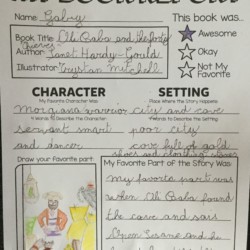 Name: Gabry
This book was...
Awesome
Book Title: Ali Baba and the forty
thieves
Okay
Author: Janet Hardy-Gould
Not My
Favorite
Illustrator: Trystan Mitchell
CHARACTER
SETTING
My Favorite Character Was:
Place Where the Story Happens
Morgiana warrior
city and cave
Words to Describe the Character:
Words to Describe the Setting:
servant smart
poor city
and dancer
cave full of gold
Draw your favorite part:
My Favorite Part of the Story Was:
my favorite part was
when Ali Baba found
the cave and says
Open Sesame and he